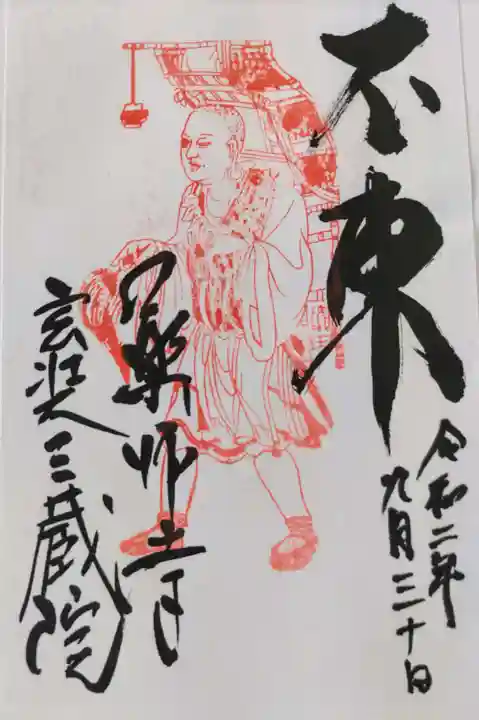 不東
令和二年
九月三十日
薬師寺
玄奘三蔵院